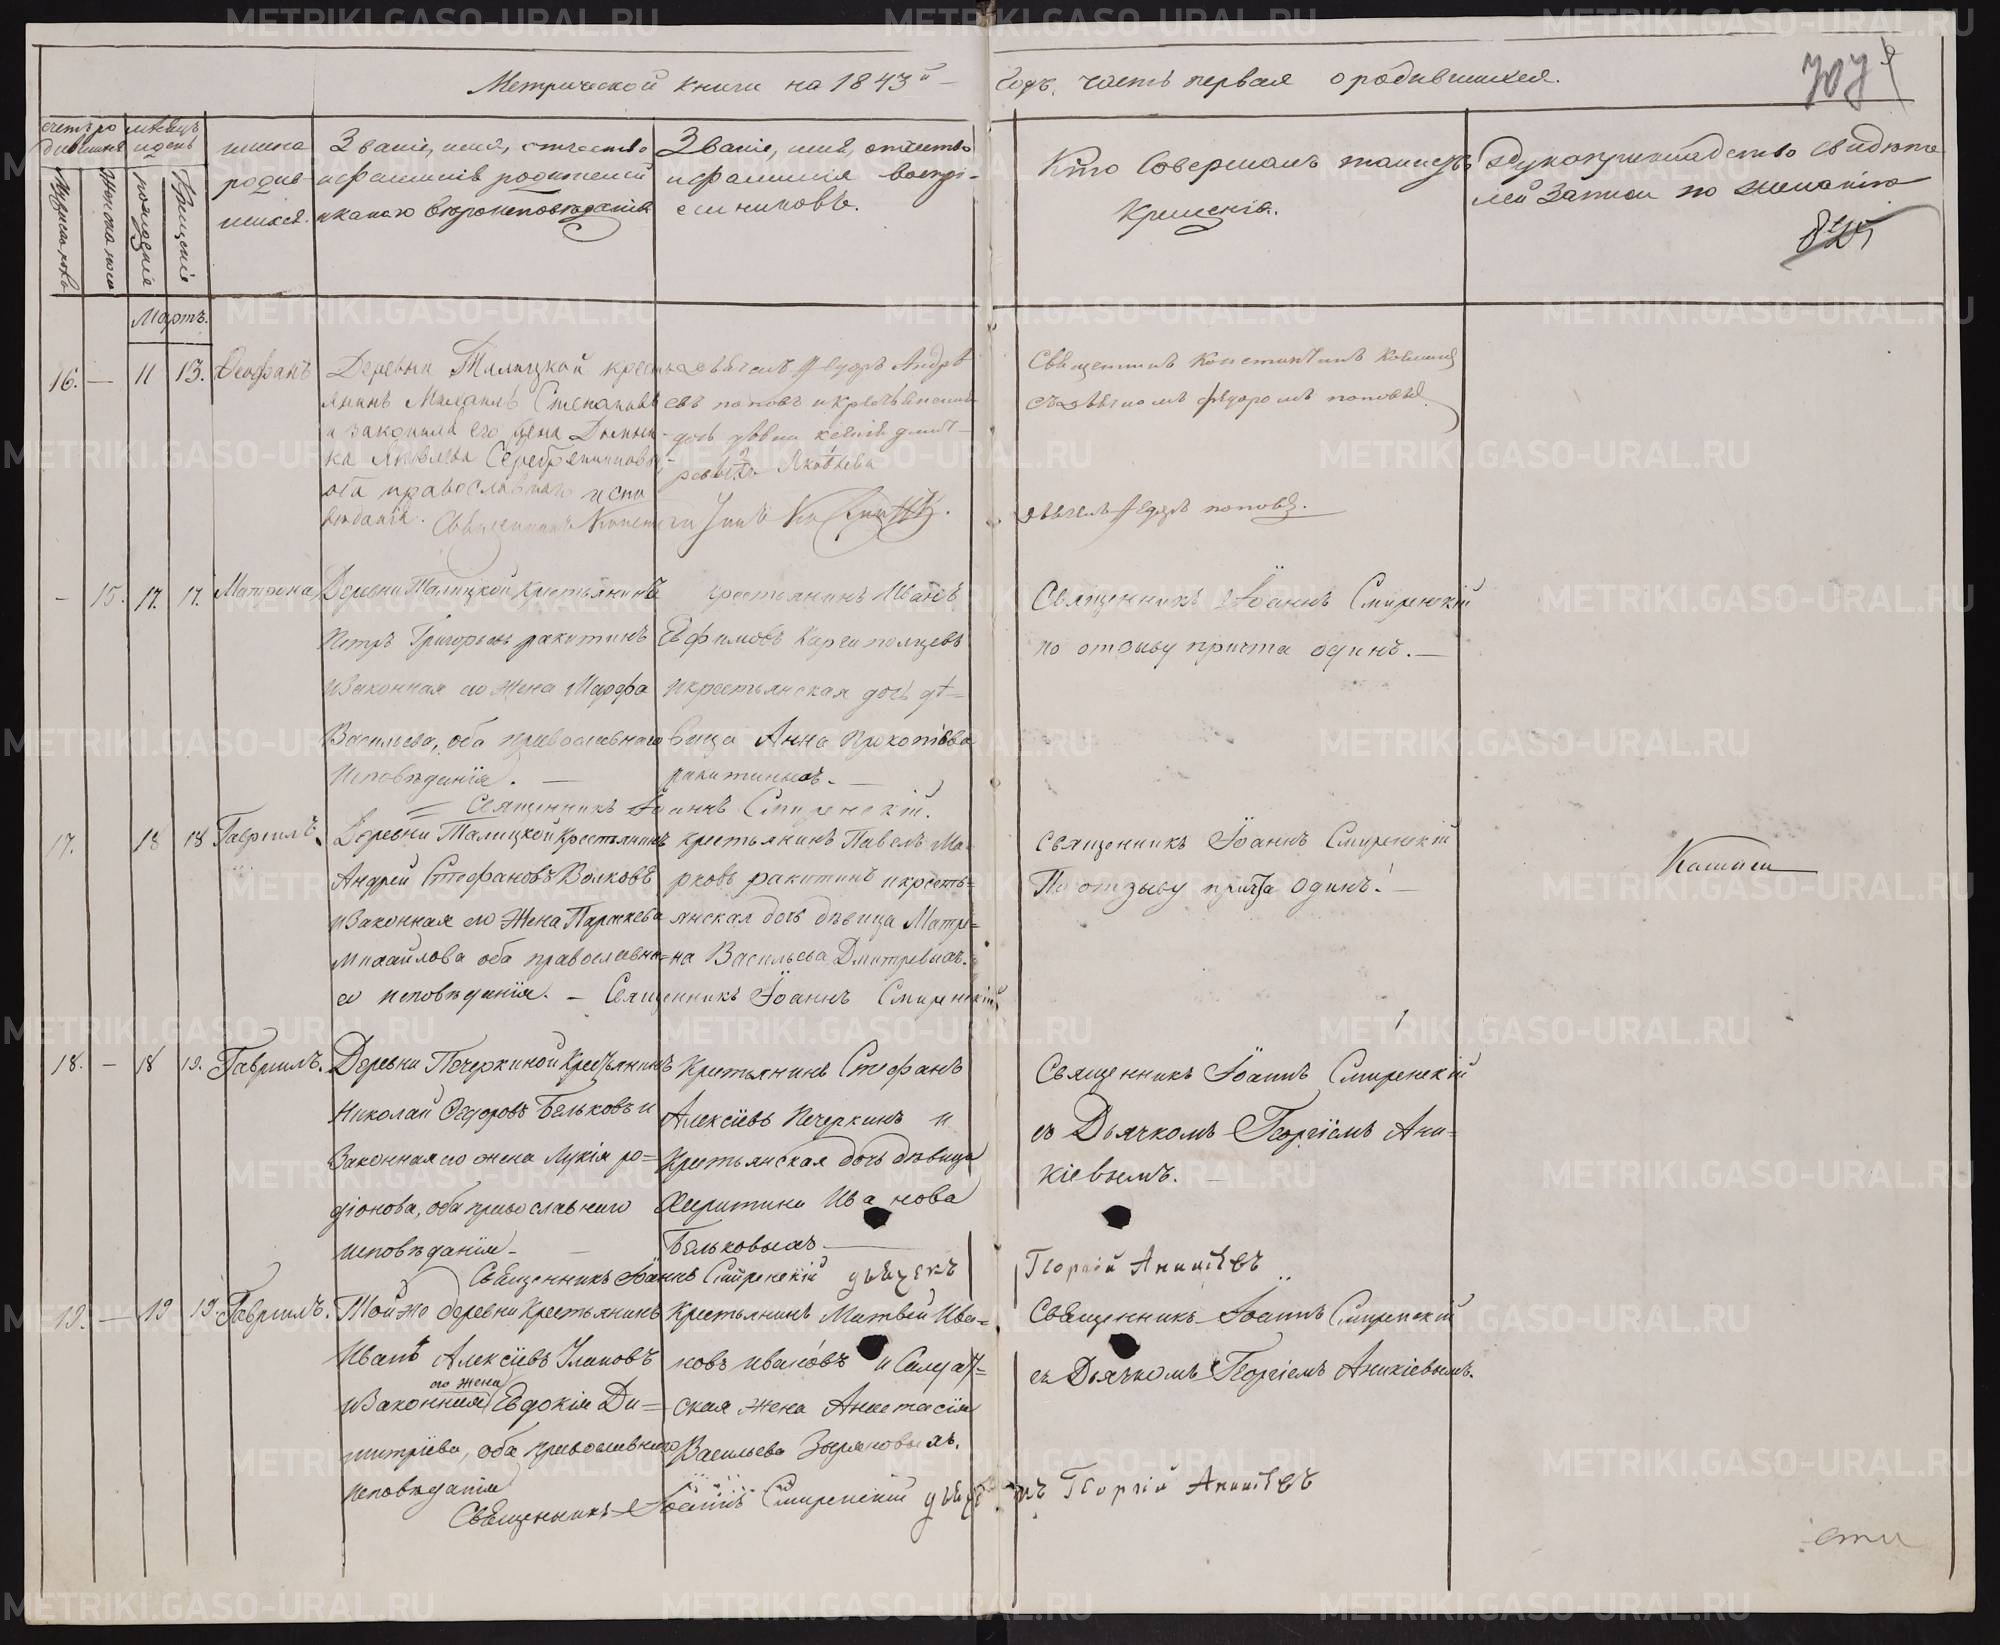 Метрической книги на 1843й годъ, часть первая о родившихся.
707
счетъ родившихся
мѣсяцъ и день
Мужеска полу
Женска полу
рожденіе
Крещеніе
имена родившихся
Званіе, имя, отчество и фамилія родителей и какого вѣроисповѣданія
Званіе, имя, отчество и фамилія воспріемниковъ.
Кто Совершалъ таинство Крещенія.
Рукоприкладство свидѣтелей записи по желанію
Мартъ.
16. — 11 13. Феофанъ
Деревни Талицкой кресть-
янинъ Михаилъ Степановъ
и законная его жена
Яковлева Серебренниковы
оба православнаго испо
вѣданія.
дьячекъ Федоръ Андре
евъ поповъ и крестьянская
дочь
Яковлева
Священникъ Константинъ
Священникъ Константинъ
съ дьячкомъ Федоромъ поповымъ
дьячекъ Федоръ поповъ.
— 15. 17. 17. Матрона
Деревни Талицкой Крестьянинъ
Петръ Григорьевъ ракитинъ
и Законная его Жена Марфа
Васильева, оба православнаго
Исповѣданія. —
крестьянинъ Иванъ
Евфимовъ Каргополцевъ
и крестьянская дочь дѣ=
вица Анна Прокопьева
ракитиныхъ. —
Священникъ Іоаннъ Смиренскій
по отзыву причта одинъ. —
Священникъ Іоаннъ Смиренскій.
17. 18 18 Гавріилъ.
Деревни Талицкой Крестьянинъ
Андрей Стефановъ Волковъ
и Законная его Жена Параскева
Михайлова оба православна=
го исповѣданія. —
крестьянинъ Павелъ Ма=
рковъ ракитинъ и кресть=
янская дочь дѣвица Матро=
на Васильева Дмитревыхъ.
Священникъ Іоаннъ Смиренскій
Священникъ Іоаннъ Смиренскій
По отзыву причта одинъ. —
18. — 18 19. Гавріилъ.
Деревни Печеркиной Крестьянинъ
Николай Федоровъ Бѣльковъ и
Законная его жена Лукія ро=
діонова, оба православнаго
исповѣданія —
Крестьянинъ Стефанъ
Алексіевъ Печеркинъ и
Крестьянская дочь дѣвица
Харитина Иванова
Бѣльковыхъ —
Священникъ Іоаннъ Смиренскій
съ Дьячкомъ Георгіемъ Ани=
кіевымъ. —
Священникъ Іоаннъ Смиренскій дьячекъ Георгій Аникіевъ
19. — 19 19. Гавріилъ.
Той же деревни Крестьянинъ
Иванъ Алексіевъ Улановъ
его жена
и Законная Евдокія Ди=
митріева, оба православнаго
исповѣданія
Крестьянинъ Матвей Ива=
новъ Ивановъ и Салдат=
ская жена Анастасія
Васильева Зыряновыхъ.
Священникъ Іоаннъ Смиренскій
съ Дьячкомъ Георгіемъ Аникіевымъ.
Священникъ Іоаннъ Смиренскій дьячекъ Георгій Аникіевъ
METRIKI.GASO-URAL.RU